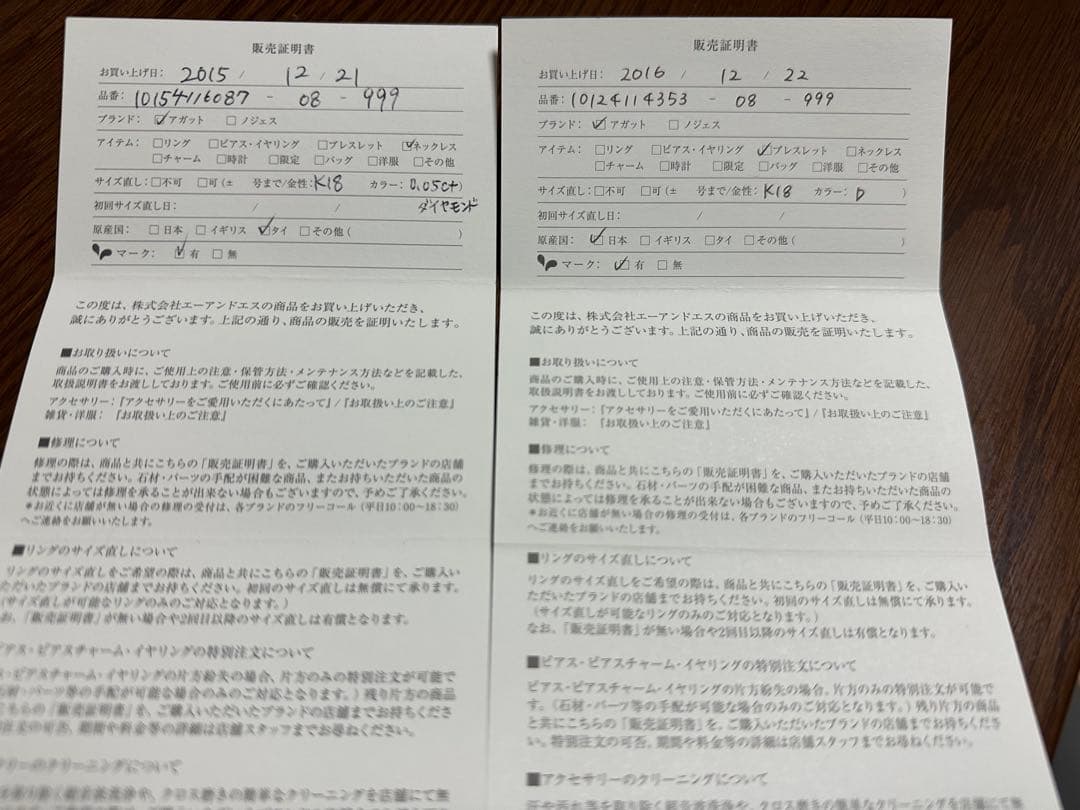 販売証明書
お買い上げ日: 2015 / 12 / 21
品番: 10154116087 - 08 - 999
ブランド: ☑アガット □ノジェス
アイテム: □リング □ピアス・イヤリング □ブレスレット ☑ネックレス
□チャーム □時計 □限定 □バッグ □洋服 □その他
サイズ直し: □不可 □可(± 号まで/金性: K18 カラー: 0.05ct)
初回サイズ直し日: / / ダイヤモンド
原産国: □日本 □イギリス ☑タイ □その他( )
マーク: ☑有 □無
この度は、株式会社エーアンドエスの商品をお買い上げいただき、
誠にありがとうございます。上記の通り、商品の販売を証明いたします。
■お取り扱いについて
商品のご購入時に、ご使用上の注意・保管方法・メンテナンス方法などを記載した、
取扱説明書をお渡ししております。ご使用前に必ずご確認ください。
アクセサリー:『アクセサリーをご愛用いただくにあたって』/『お取扱い上のご注意』
雑貨・洋服: 『お取扱い上のご注意』
■修理について
修理の際は、商品と共にこちらの「販売証明書」を、ご購入いただいたブランドの店舗
までお持ちください。石材・パーツの手配が困難な商品、またお持ちいただいた商品の
状態によっては修理を承ることが出来ない場合もございますので、予めご了承ください。
*お近くに店舗が無い場合の修理の受付は、各ブランドのフリーコール(平日10:00〜18:30)
へご連絡をお願いいたします。
■リングのサイズ直しについて
リングのサイズ直しをご希望の際は、商品と共にこちらの「販売証明書」を、ご購入い
ただいたブランドの店舗までお持ちください。初回のサイズ直しは無償にて承ります。
(サイズ直しが可能なリングのみのご対応となります。)
お、「販売証明書」が無い場合や2回目以降のサイズ直しは有償となります。
アス・ピアスチャーム・イヤリングの特別注文について
ス・ピアスチャーム・イヤリングの片方紛失の場合、片方のみの特別注文が可能で
材・パーツ等の手配が可能な場合のみのご対応となります。)残り片方の商品
こちらの「販売証明書」を、ご購入いただいたブランドの店舗までお持ちくださ
注文の可否、期間や料金等の詳細は店舗スタッフまでお尋ねください。
リーのクリーニングについて
販売証明書
お買い上げ日: 2016 / 12 / 22
品番: 10124114353 - 08 - 999
ブランド: ☑アガット □ノジェス
アイテム: □リング □ピアス・イヤリング ☑ブレスレット □ネックレス
□チャーム □時計 □限定 □バッグ □洋服 □その他
サイズ直し: □不可 □可(± 号まで/金性: K18 カラー: D )
初回サイズ直し日: / /
原産国: ☑日本 □イギリス □タイ □その他( )
マーク: ☑有 □無
この度は、株式会社エーアンドエスの商品をお買い上げいただき、
誠にありがとうございます。上記の通り、商品の販売を証明いたします。
■お取り扱いについて
商品のご購入時に、ご使用上の注意・保管方法・メンテナンス方法などを記載した、
取扱説明書をお渡ししております。ご使用前に必ずご確認ください。
アクセサリー:『アクセサリーをご愛用いただくにあたって』/『お取扱い上のご注意』
雑貨・洋服: 『お取扱い上のご注意』
■修理について
修理の際は、商品と共にこちらの「販売証明書」を、ご購入いただいたブランドの店舗
までお持ちください。石材・パーツの手配が困難な商品、またお持ちいただいた商品の
状態によっては修理を承ることが出来ない場合もございますので、予めご了承ください。
*お近くに店舗が無い場合の修理の受付は、各ブランドのフリーコール(平日10:00〜18:30)
へご連絡をお願いいたします。
■リングのサイズ直しについて
リングのサイズ直しをご希望の際は、商品と共にこちらの「販売証明書」を、ご購入い
ただいたブランドの店舗までお持ちください。初回のサイズ直しは無償にて承ります。
(サイズ直しが可能なリングのみのご対応となります。)
なお、「販売証明書」が無い場合や2回目以降のサイズ直しは有償となります。
■ピアス・ピアスチャーム・イヤリングの特別注文について
ピアス・ピアスチャーム・イヤリングの片方紛失の場合、片方のみの特別注文が可能で
す。(石材・パーツ等の手配が可能な場合のみのご対応となります。)残り片方の商品
と共にこちらの「販売証明書」を、ご購入いただいたブランドの店舗までお持ちくださ
い。特別注文の可否、期間や料金等の詳細は店舗スタッフまでお尋ねください。
■アクセサリーのクリーニングについて